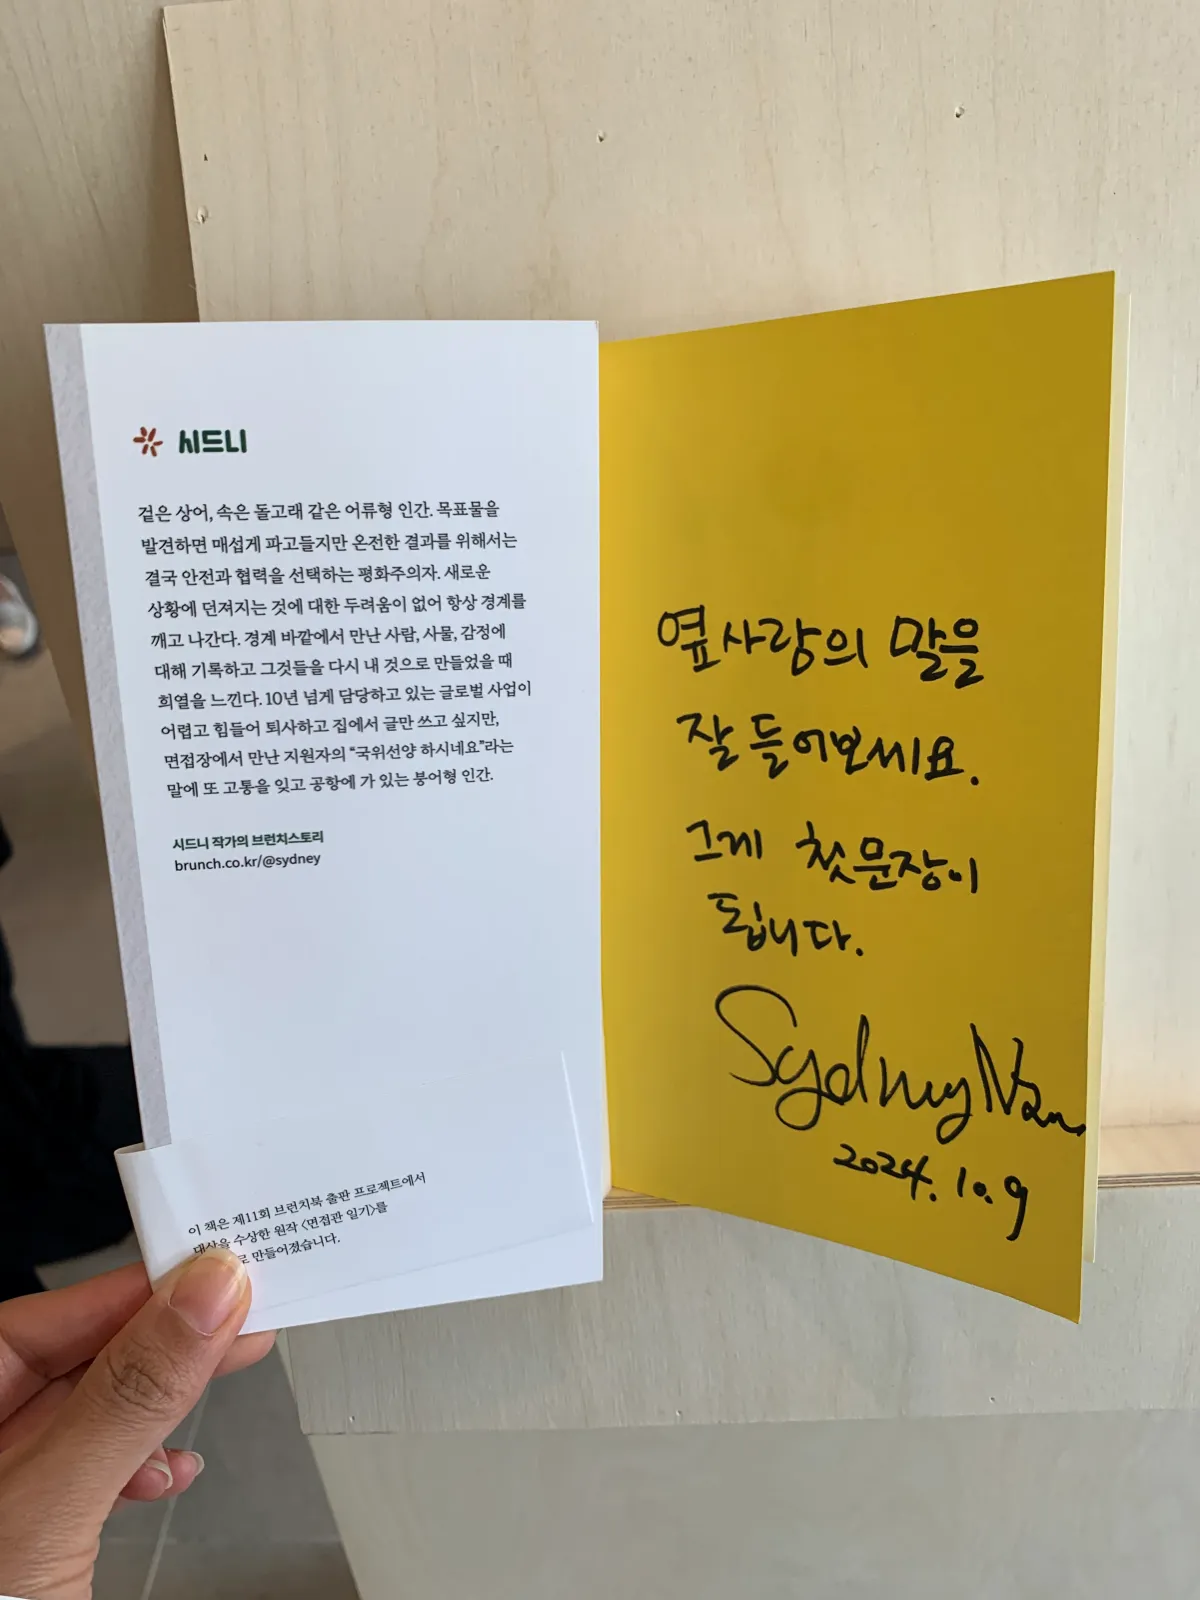 시드니
겉은 상어, 속은 돌고래 같은 어류형 인간. 목표물을
발견하면 매섭게 파고들지만 온전한 결과를 위해서는
결국 안전과 협력을 선택하는 평화주의자. 새로운
상황에 던져지는 것에 대한 두려움이 없어 항상 경계를
깨고 나간다. 경계 바깥에서 만난 사람, 사물, 감정에
대해 기록하고 그것들을 다시 내 것으로 만들었을 때
희열을 느낀다. 10년 넘게 담당하고 있는 글로벌 사업이
어렵고 힘들어 퇴사하고 집에서 글만 쓰고 싶지만,
면접장에서 만난 지원자의 “국위선양 하시네요”라는
말에 또 고통을 잊고 공항에 가 있는 붕어형 인간.
시드니 작가의 브런치스토리
brunch.co.kr/@sydney
이 책은 제11회 브런치북 출판 프로젝트에서
대상을 수상한 원작 〈면접관 일기〉를
로 만들어졌습니다.
옆사람의 말을
잘 들어보세요.
그게 첫문장이
됩니다.
Sydney Nam
2024. 10. 9